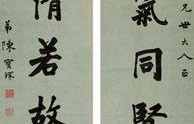 兄世大人正
氣同賢
情若故
弟陳寶琛